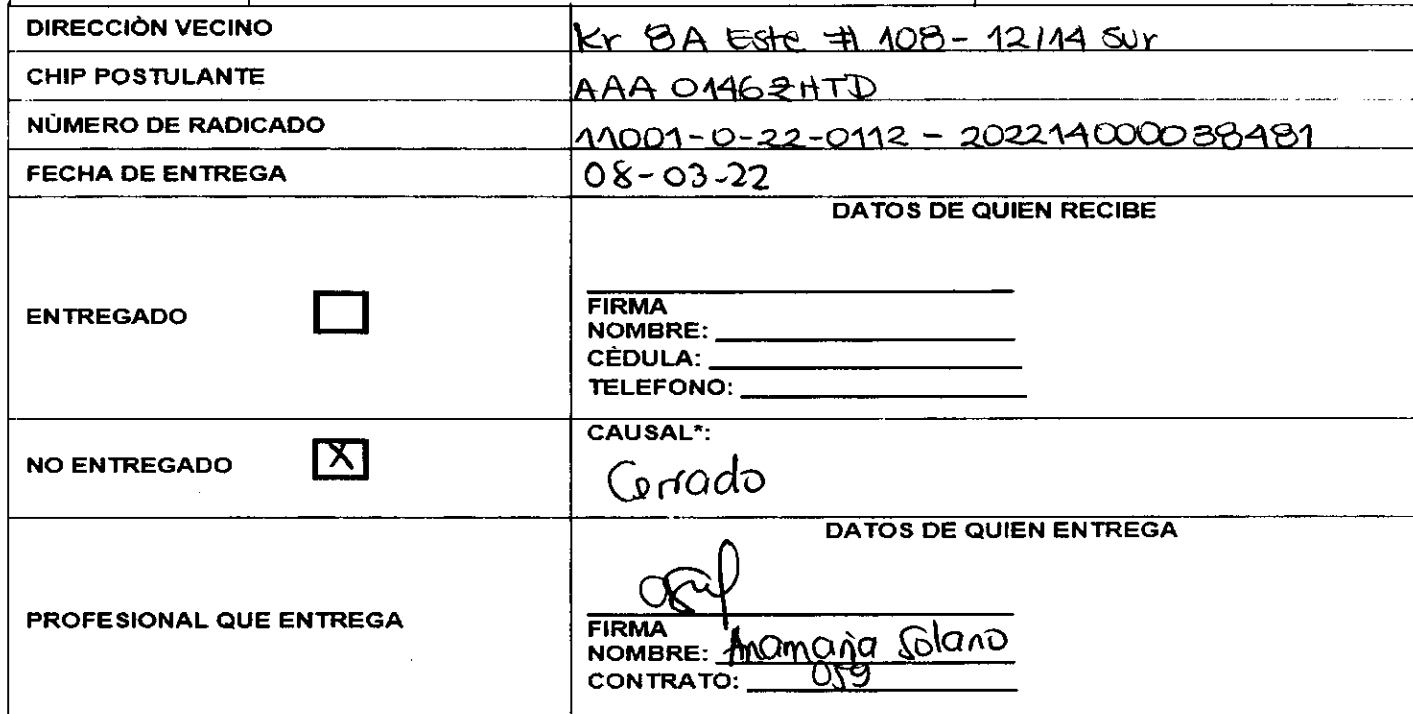 DIRECCIÒN VECINO Kr 8A Este # 108-12/14 Sur
CHIP POSTULANTE AAA 0146ZHTD
NÙMERO DE RADICADO 11001-0-22-0112 - 2022140000038481
FECHA DE ENTREGA 08-03-22
DATOS DE QUIEN RECIBE
ENTREGADO
FIRMA
NOMBRE:
CÈDULA:
TELEFONO:
NO ENTREGADO X
CAUSAL*:
Cerrado
DATOS DE QUIEN ENTREGA
PROFESIONAL QUE ENTREGA
FIRMA
NOMBRE: Anamaria Solano
CONTRATO: 059